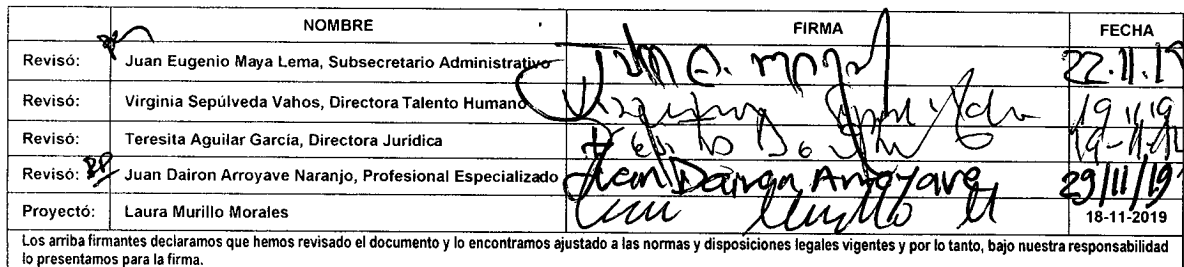 NOMBRE FIRMA FECHA
Revisó: Juan Eugenio Maya Lema, Subsecretario Administrativo Juan E. Maya 22.11.19
Revisó: Virginia Sepúlveda Vahos, Directora Talento Humano 19 11 19
Revisó: Teresita Aguilar García, Directora Jurídica 19-11-
Revisó: Juan Dairon Arroyave Naranjo, Profesional Especializado Juan Dairon Arroyave 29/11/19
Proyectó: Laura Murillo Morales Laura Murillo M 18-11-2019
Los arriba firmantes declaramos que hemos revisado el documento y lo encontramos ajustado a las normas y disposiciones legales vigentes y por lo tanto, bajo nuestra responsabilidad
lo presentamos para la firma.